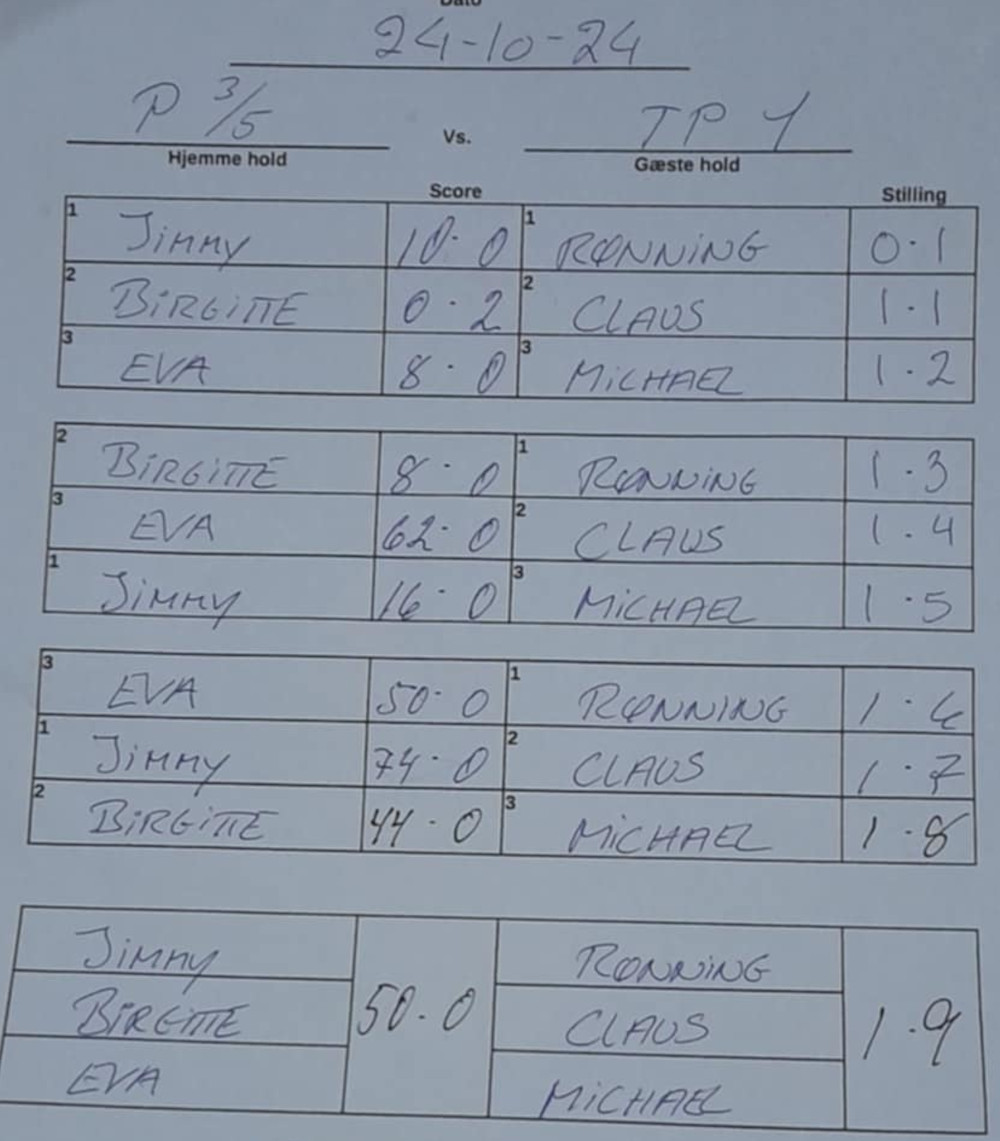 Dato
24-10-24
P 3/5 Vs. TP 1
Hjemme hold Gæste hold
Score Stilling
1 JIMMY 10-0 1 RØNNING 0-1
2 BIRGITTE 0-2 2 CLAUS 1-1
3 EVA 8-0 3 MICHAEL 1-2
2 BIRGITTE 8-0 1 RØNNING 1-3
3 EVA 62-0 2 CLAUS 1-4
1 JIMMY 16-0 3 MICHAEL 1-5
3 EVA 50-0 1 RØNNING 1-6
1 JIMMY 74-0 2 CLAUS 1-7
2 BIRGITTE 44-0 3 MICHAEL 1-8
JIMMY RØNNING
BIRGITTE 50-0 CLAUS 1-9
EVA MICHAEL